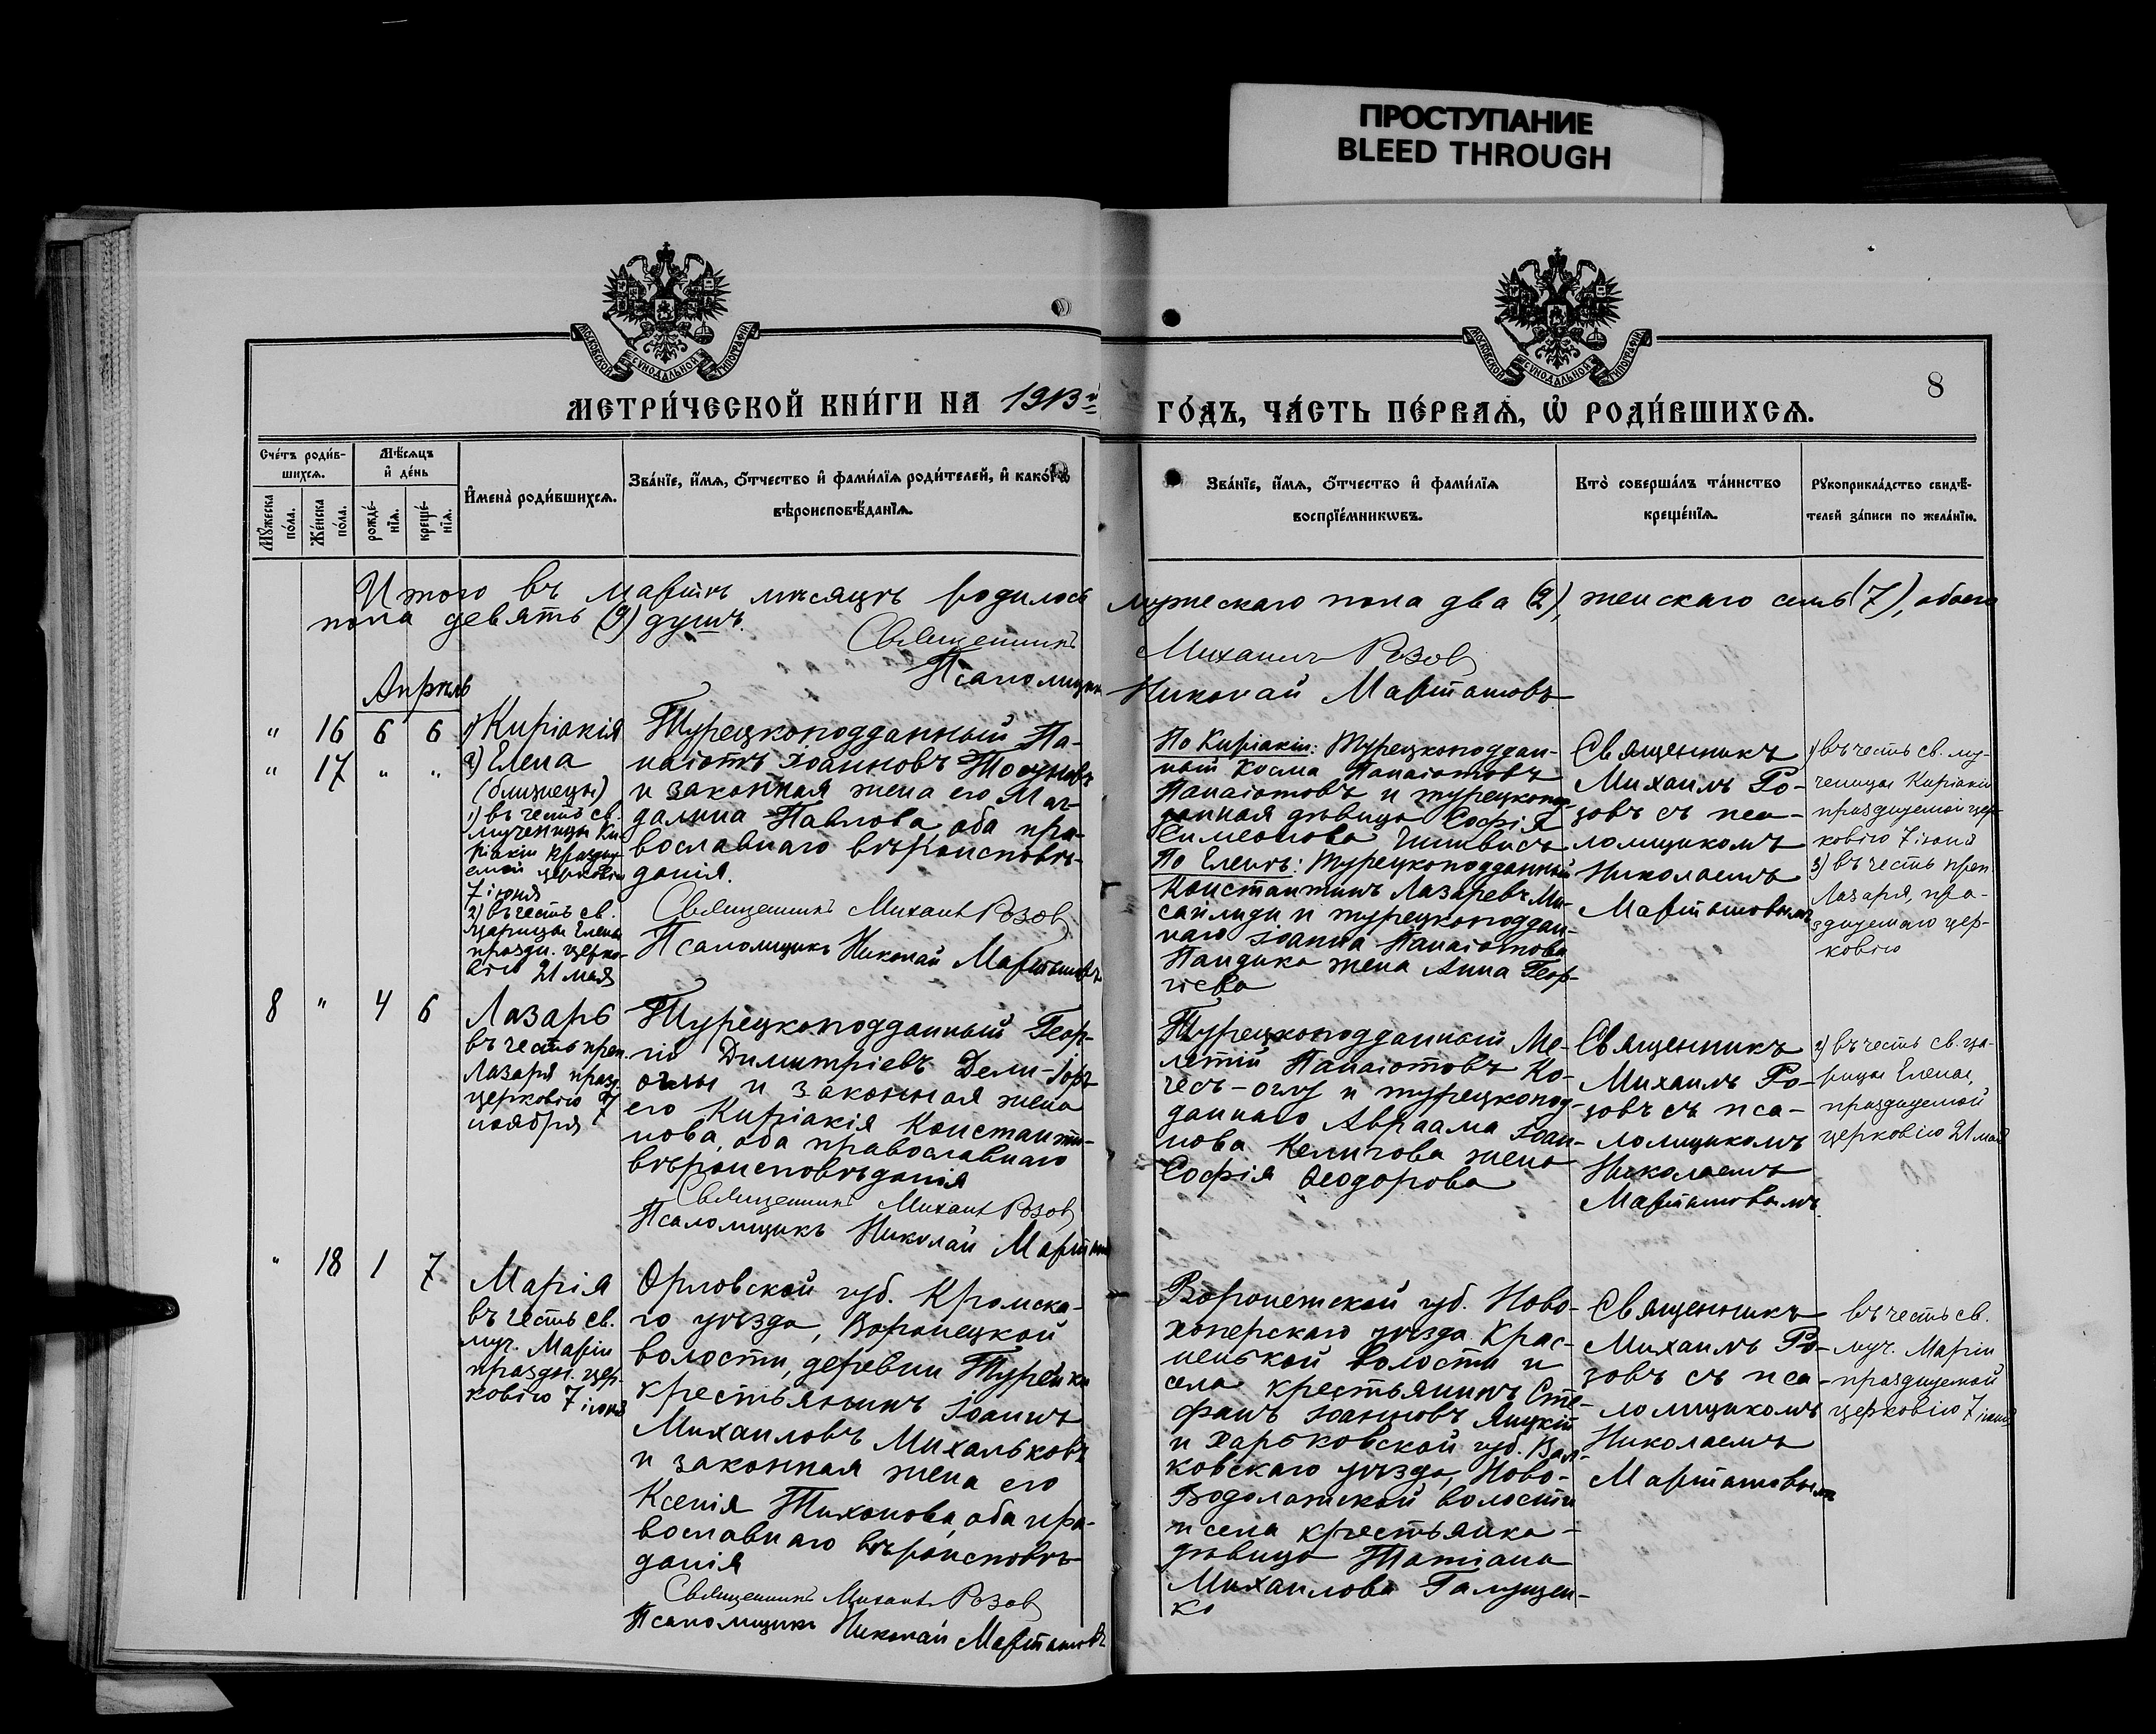 ПРОСТУПАНИЕ
BLEED THROUGH
МОСКОВСКОЙ СУНОДАЛЬНОЙ ТИПОГРАФІИ
МОСКОВСКОЙ СУНОДАЛЬНОЙ ТИПОГРАФІИ
8
МЕТРИ́ЧЕСКОЙ КНИ́ГИ НА 1913й
ГО́ДЪ, ЧА́СТЬ ПЕ́РВАѦ, Ѡ҆ РОДИ́ВШИХСѦ.
Сче́тъ роди́в-
шихсѧ.
Мѣ́сѧцъ
и҆ де́нь
Мꙋ́жеска
по́ла.
Же́нска
по́ла.
рожде́-
нїѧ.
креще́-
нїѧ.
И҆мена̀ роди́вшихсѧ.
Зва́нїе, и҆́мѧ, ѻ҆́тчество и҆ фами́лїѧ роди́телей, и҆ како́гѡ
вѣроисповѣ́данїѧ.
Зва́нїе, и҆́мѧ, ѻ҆́тчество и҆ фами́лїѧ
воспрїе́мникѡвъ.
Кто̀ соверша́лъ та́инство
креще́нїѧ.
Рꙋкоприкла́дство свидѣ́-
телей за́писи по жела́нїю.
Итого въ мартѣ мѣсяцѣ родилось мужескаго пола два (2), женскаго семь (7), обоего
пола девять (9) душъ.
Священникъ Михаилъ Розовъ
Псаломщикъ Николай Мартыновъ
Апрѣль
" 16 6 6
" 17 " "
1) Киріакія
2) Елена
(близнецы)
1) въ честь св.
мученицы Ки-
ріакіи празду-
емой церковію
7 іюня
2) въ честь св.
царицы Елены
праздн. церко-
вію 21 мая
Турецкоподданный Па-
наіотъ Іоанновъ
и законная жена его Маг-
далина Павлова, оба пра-
вославнаго вѣроисповѣ-
данія.
Священникъ Михаилъ Розовъ
Псаломщикъ Николай Мартыновъ
По Киріакіи: Турецкоподдан-
ный Косма Панаіотовъ
Панаіотовъ и турецкопод-
данная дѣвица Софія
Симеонова
По Еленѣ: Турецкоподданный
Константинъ Лазаревъ Ми-
саилиди и турецкоподдан-
наго Іоанна Панаіотова
Пандика жена Анна Геор-
гіева
Священникъ
Михаилъ Ро-
зовъ съ пса-
ломщикомъ
Николаемъ
Мартыновымъ
1) въ честь св. му-
ченицы Киріакіи
празднуемой цер-
ковію 7 іюня
3) въ честь преп.
Лазаря, пра-
зднуемаго цер-
ковію
8 " 4 6
Лазарь
въ честь преп.
Лазаря празд.
церковію 7
ноября
Турецкоподданный Геор-
гій Димитріевъ Дели-Іор-
оглы и законная жена
его Киріакія Константи-
нова, оба православнаго
вѣроисповѣданія
Священникъ Михаилъ Розовъ
Псаломщикъ Николай Мартыновъ
Турецкоподданный Ме-
летій Панаіотовъ Ко-
чесъ-оглу и турецкопод-
даннаго Авраама Іоан-
нова Келигова жена
Софія Ѳеодорова
Священникъ
Михаилъ Ро-
зовъ съ пса-
ломщикомъ
Николаемъ
Мартыновымъ.
2) въ честь св. ца-
рицы Елены,
празднуемой
церковію 21 мая
" 18 1 7
Марія
въ честь св.
муч. Маріи
праздн. цер-
ковію 7 іюня
Орловской губ. Кромска-
го уѣзда, Воронецкой
волости, деревни Турейки
крестьянинъ Іоаннъ
Михаиловъ Михальковъ
и законная жена его
Ксенія Тихонова, оба пра-
вославнаго вѣроисповѣ-
данія
Священникъ Михаилъ Розовъ
Псаломщикъ Николай Мартыновъ
Воронежской губ. Ново-
хоперскаго уѣзда Крас-
ненькой волости и
села крестьянинъ Сте-
фанъ Іоанновъ Яицкій
и Харьковской губ. Вал-
ковскаго уѣзда, Ново-
Водолажской волости
и села крестьянка-
дѣвица Татіана
Михаилова Галущен-
ко
Священникъ
Михаилъ Ро-
зовъ съ пса-
ломщикомъ
Николаемъ
Мартыновымъ
въ честь св.
муч. Маріи
празднуемой
церковію 7 іюня